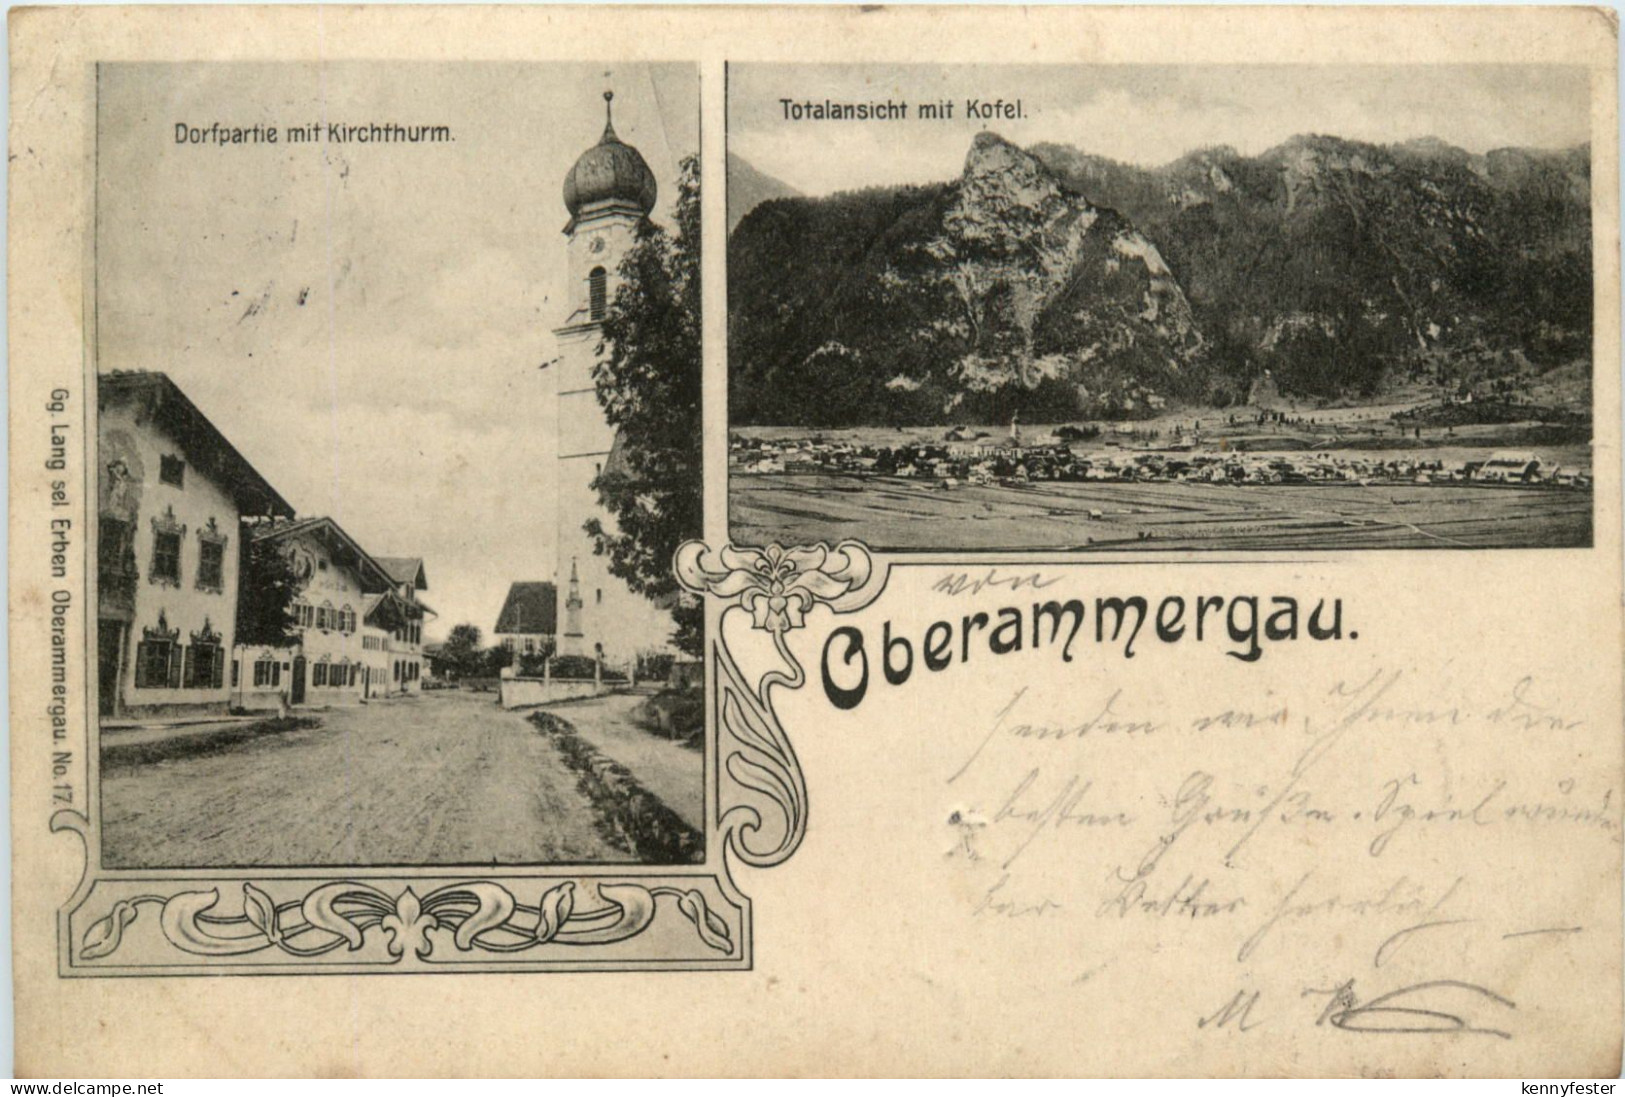 Dorfpartie mit Kirchthurm.
Totalansicht mit Kofel.
Gg. Lang sel. Erben Oberammergau. No. 17.
von
Oberammergau.
senden wir Ihnen die
besten Grüße. Spiel wunder-
bar. Wetter herrlich
M
www.delcampe.net
kennyfester